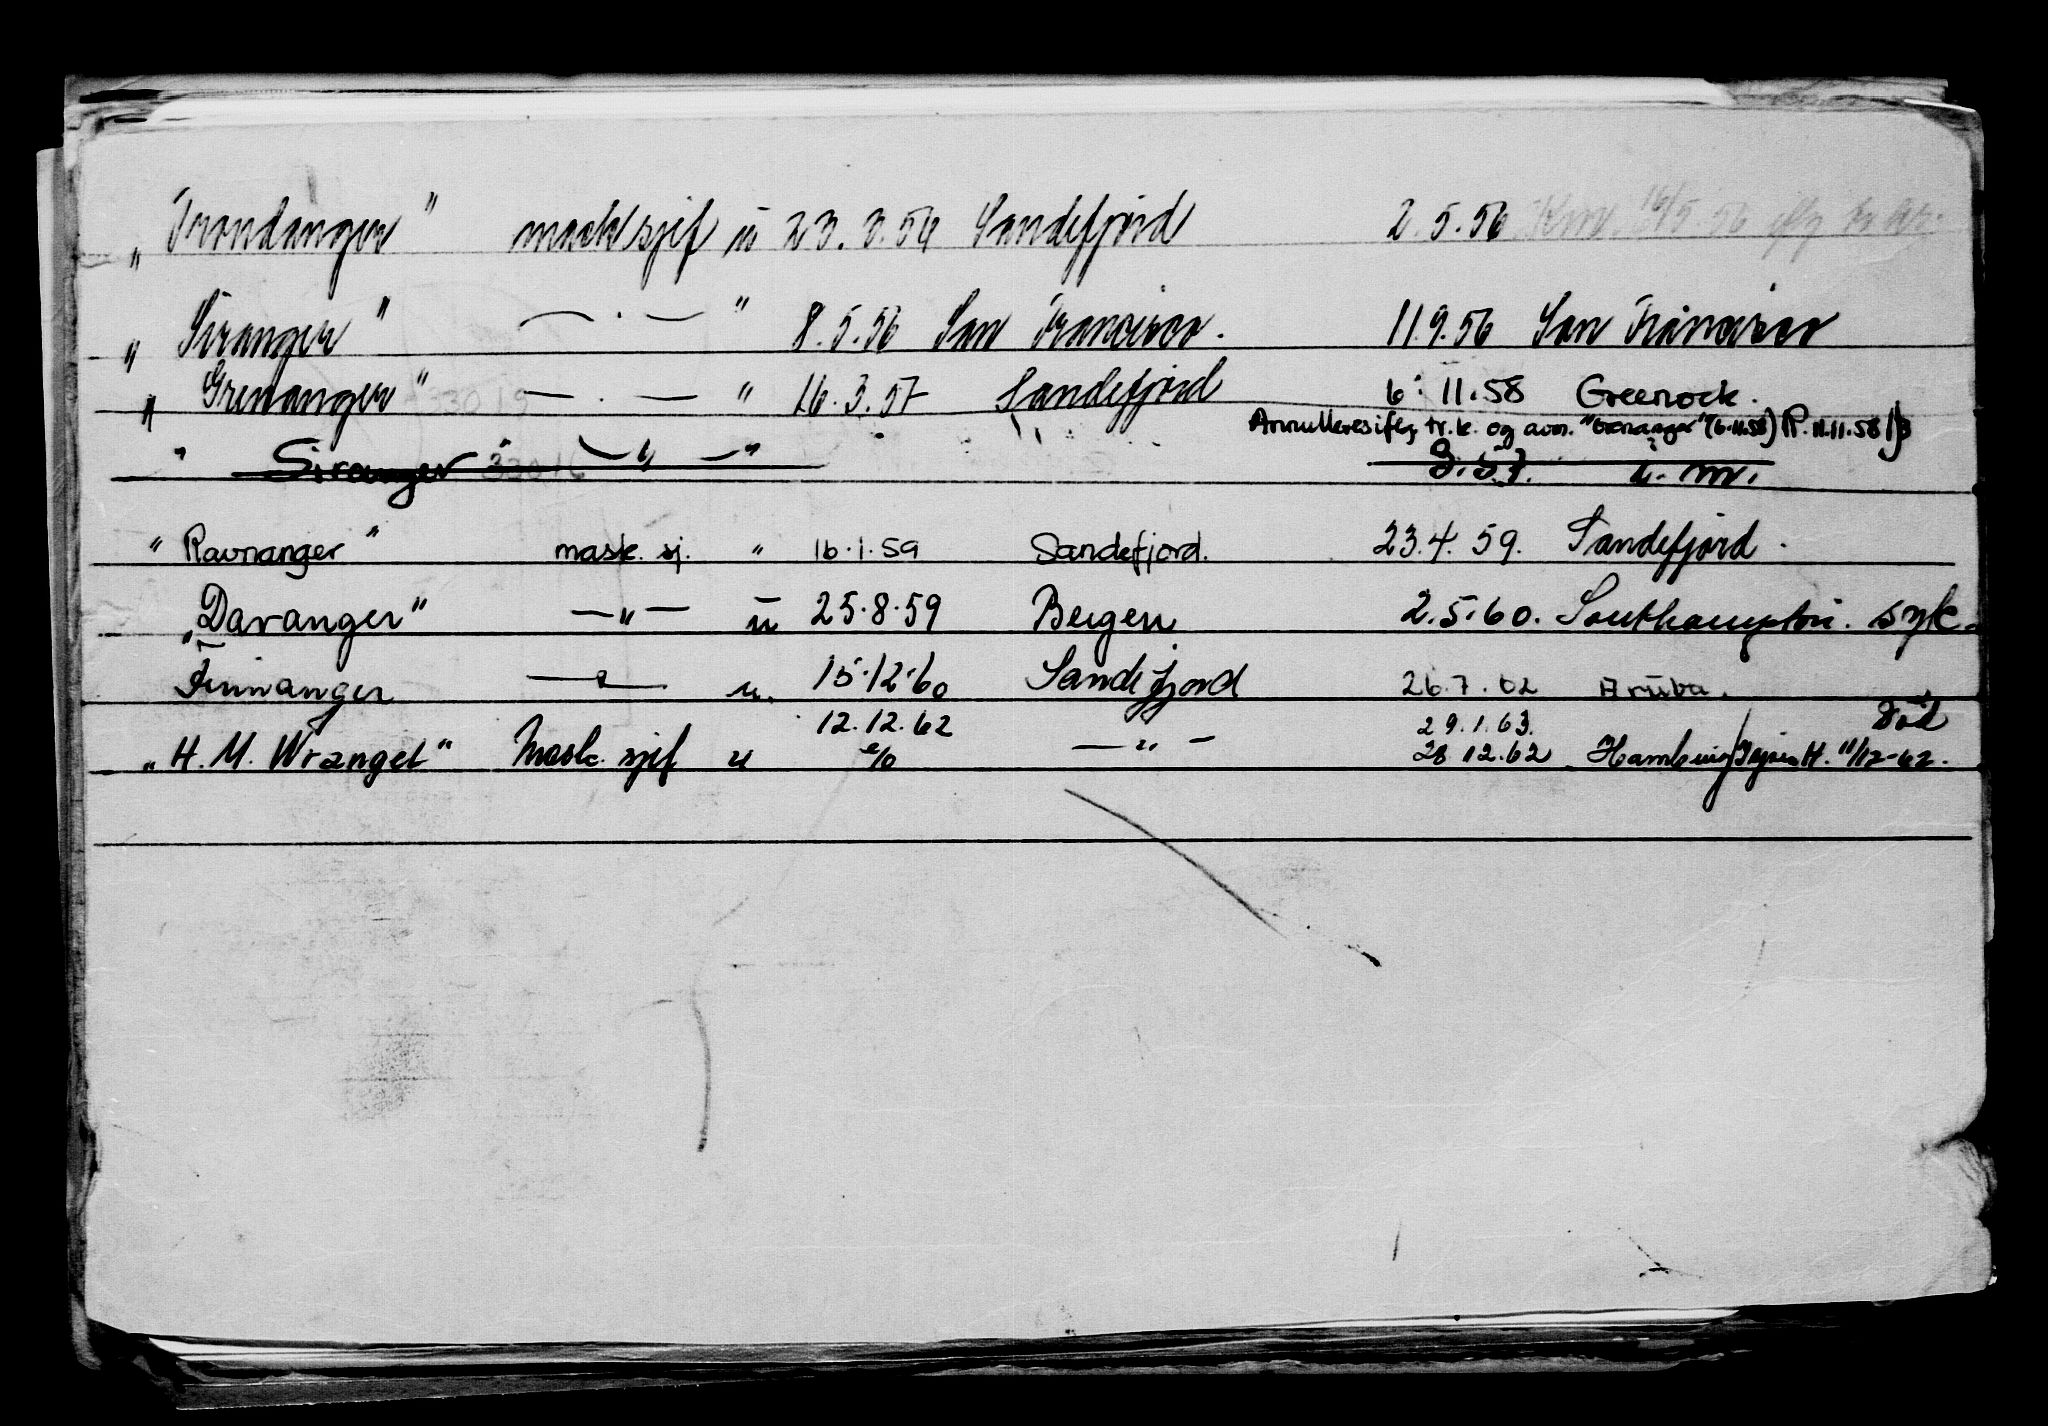 „Trondanger" mask sjef u 23.3.56 Sandefjord 2.5.56
„Siranger" — . — " 8.5.56 San Francisco. 11.9.56 San Francisco
„Grenanger" — . — " 16.3.57 Sandefjord 6.11.58 Greenock.
Annulleres iflg tr.k. og avm. "Grenanger" (6.11.58) (P. 11.11.58)
" Siranger " 33016 — " — " 3.57. i. m.
" Ravnanger " mask. sj. " 16.1.59 Sandefjord. 23.4.59. Sandefjord.
„Davanger" — " — u 25.8.59 Bergen 2.5.60. Southampton. syk.
Finnanger — " — u. 15.12.60 Sandefjord 26.7.62 Aruba.
12.12.62 29.1.63. Død
„H. M. Wrangel" Mask. sjef u — " — 28.12.62 Hamburg H. 11/12-62.